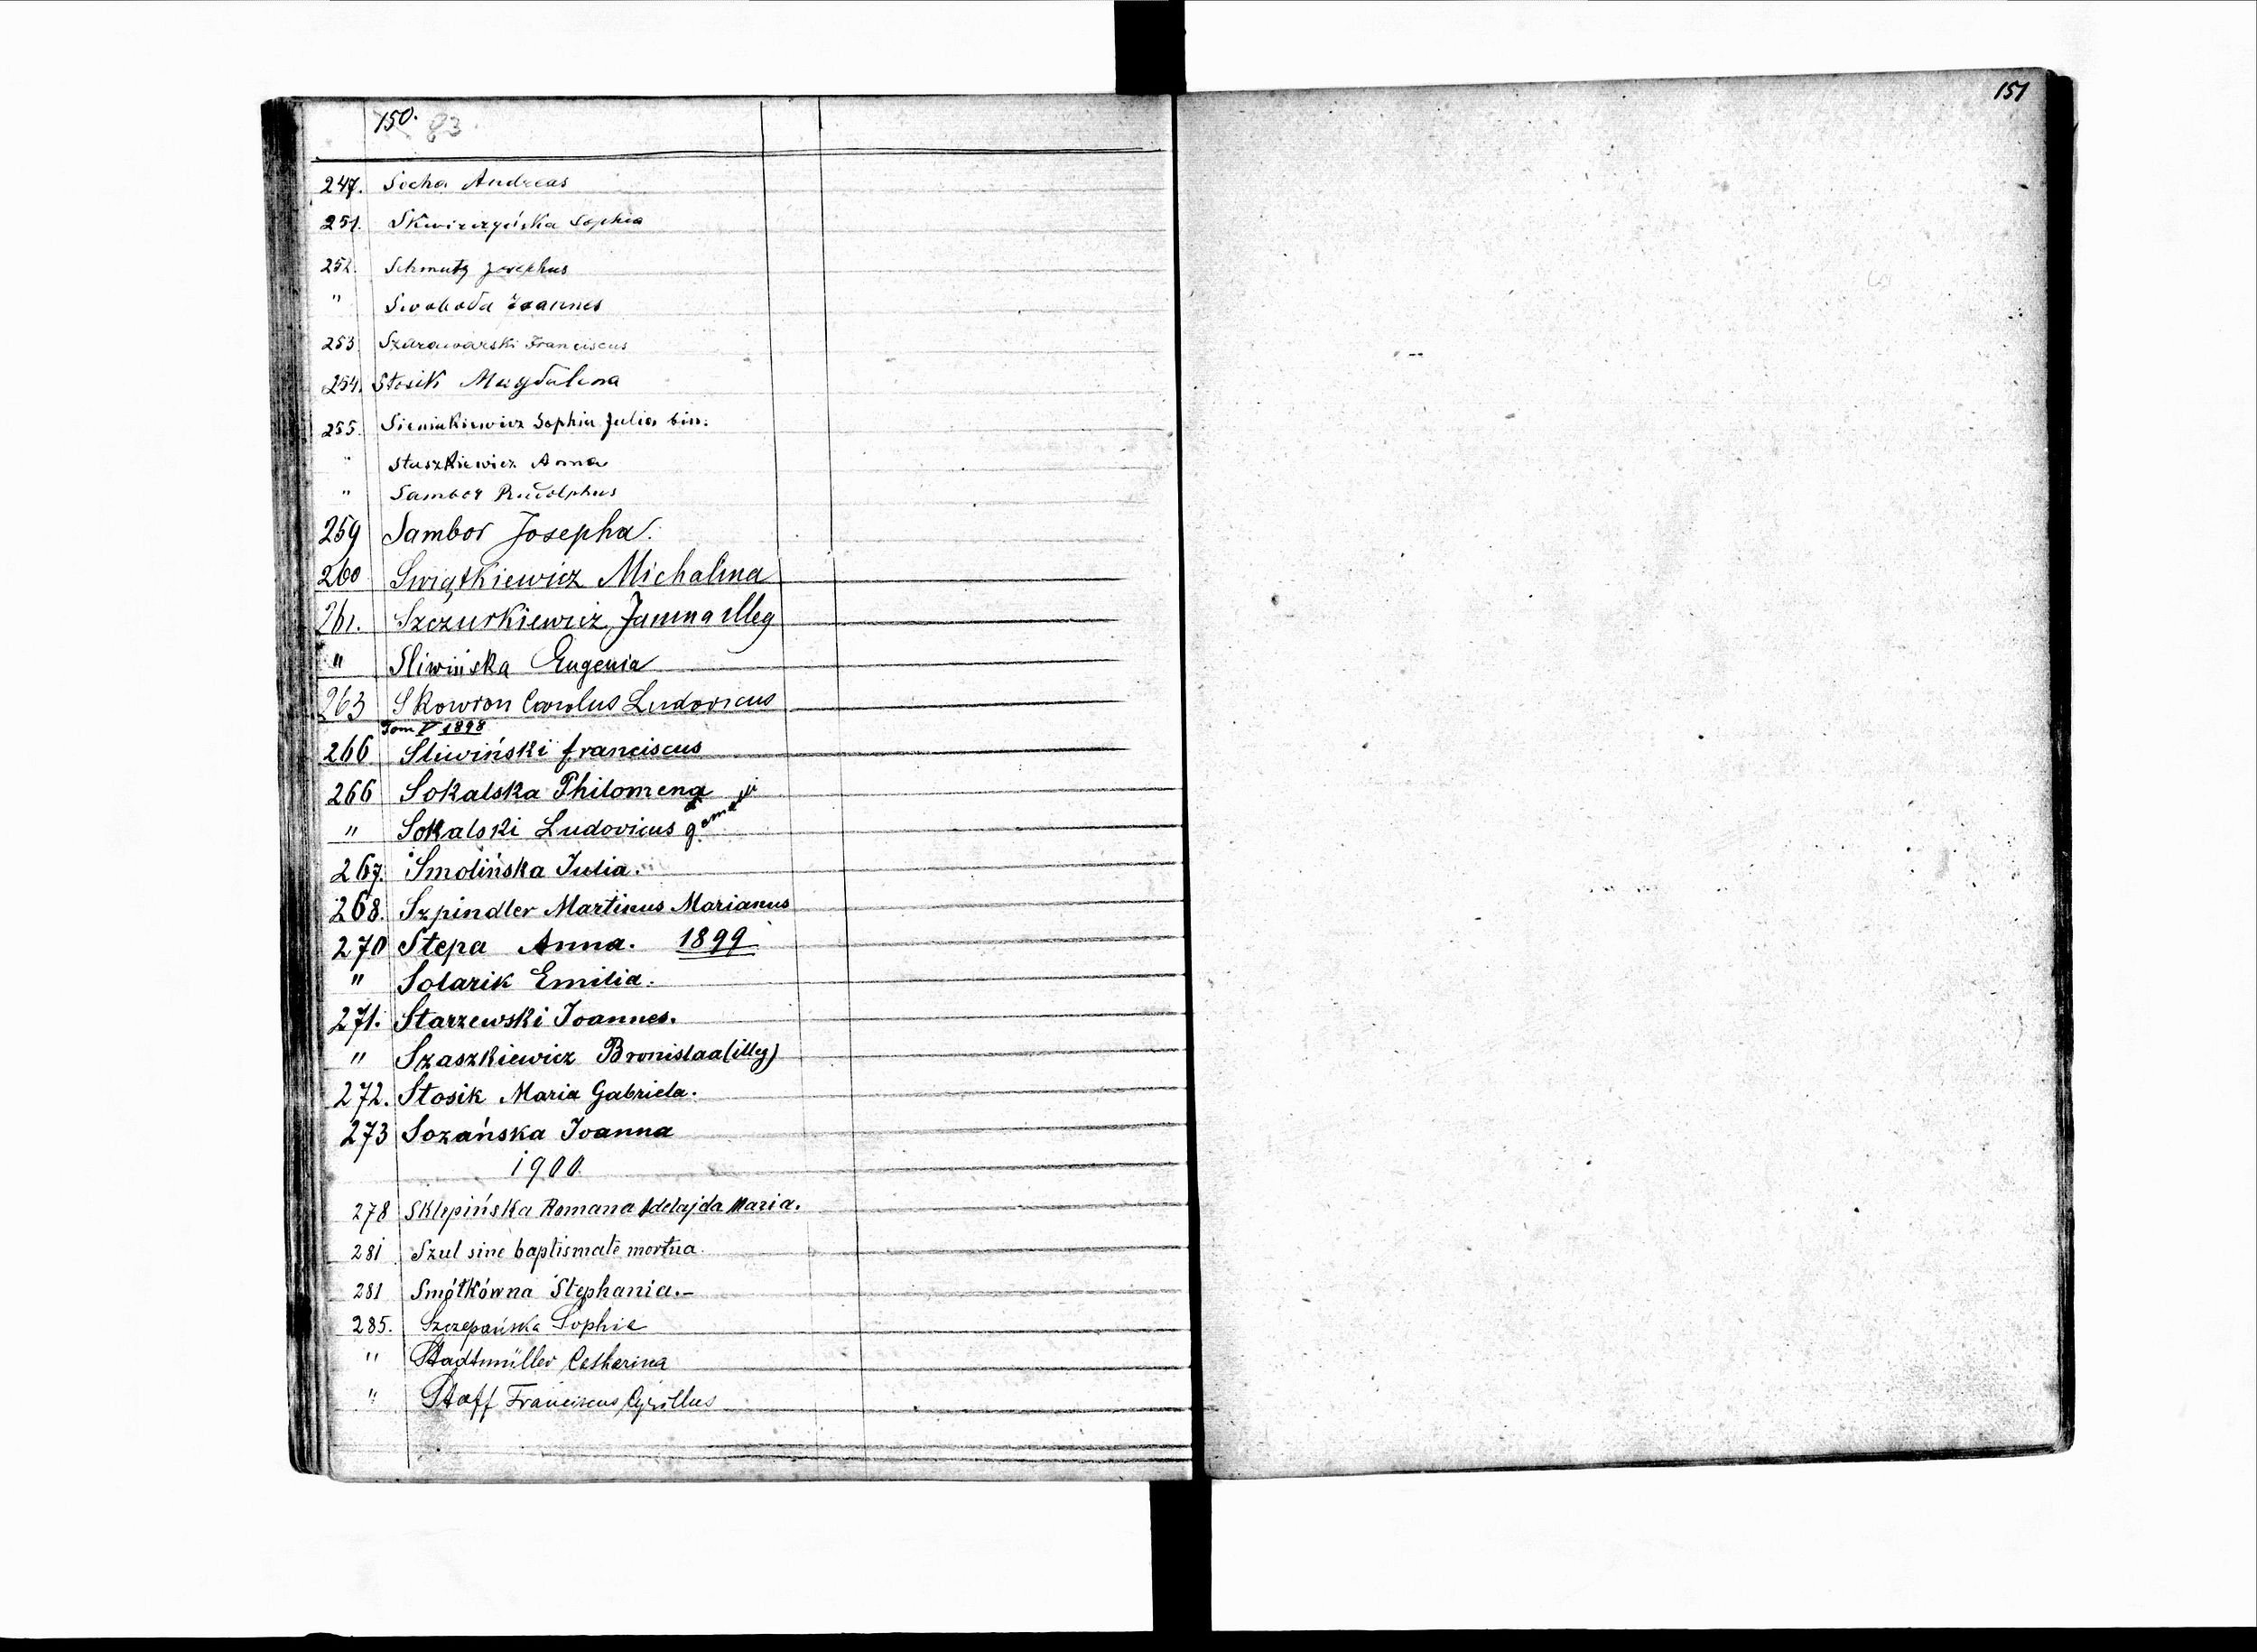 150. 83.
151
247. Socha Andreas
251. Skwirczyńska Sophia
252. Schmutz Josephus
" Swoboda Joannes
253 Szarawarski Franciscus
254. Stosik Magdalena
255. Sieniakiewicz Sophia Julia bin.
" Staszkiewicz Anna
" Sambor Rudolphus
259 Sambor Josepha.
260 Swiątkiewicz Michalina
261. Szczurkiewicz Janina illeg
" Sliwińska Eugenia
263 Skowron Carolus Ludovicus
Tom V 1898
266 Sliwiński franciscus
266 Sokalska Philomena
" Sokalski Ludovicus gemelli
267. Smolińska Julia.
268. Szpindler Martinus Marianus
270 Stepa Anna. 1899
" Solarik Emilia.
271. Starzewski Joannes.
" Szaszkiewicz Bronislaa (illeg)
272. Stosik Maria Gabriela.
273 Sozańska Joanna
1900
278 Sklepińska Romana Adelajda Maria.
281 Szul sine baptismate mortua.
281 Smółkówna Stephania.-
285. Szczepańska Sophie
" Stadtmüller Catharina
" Staff Franciscus Cyrillus